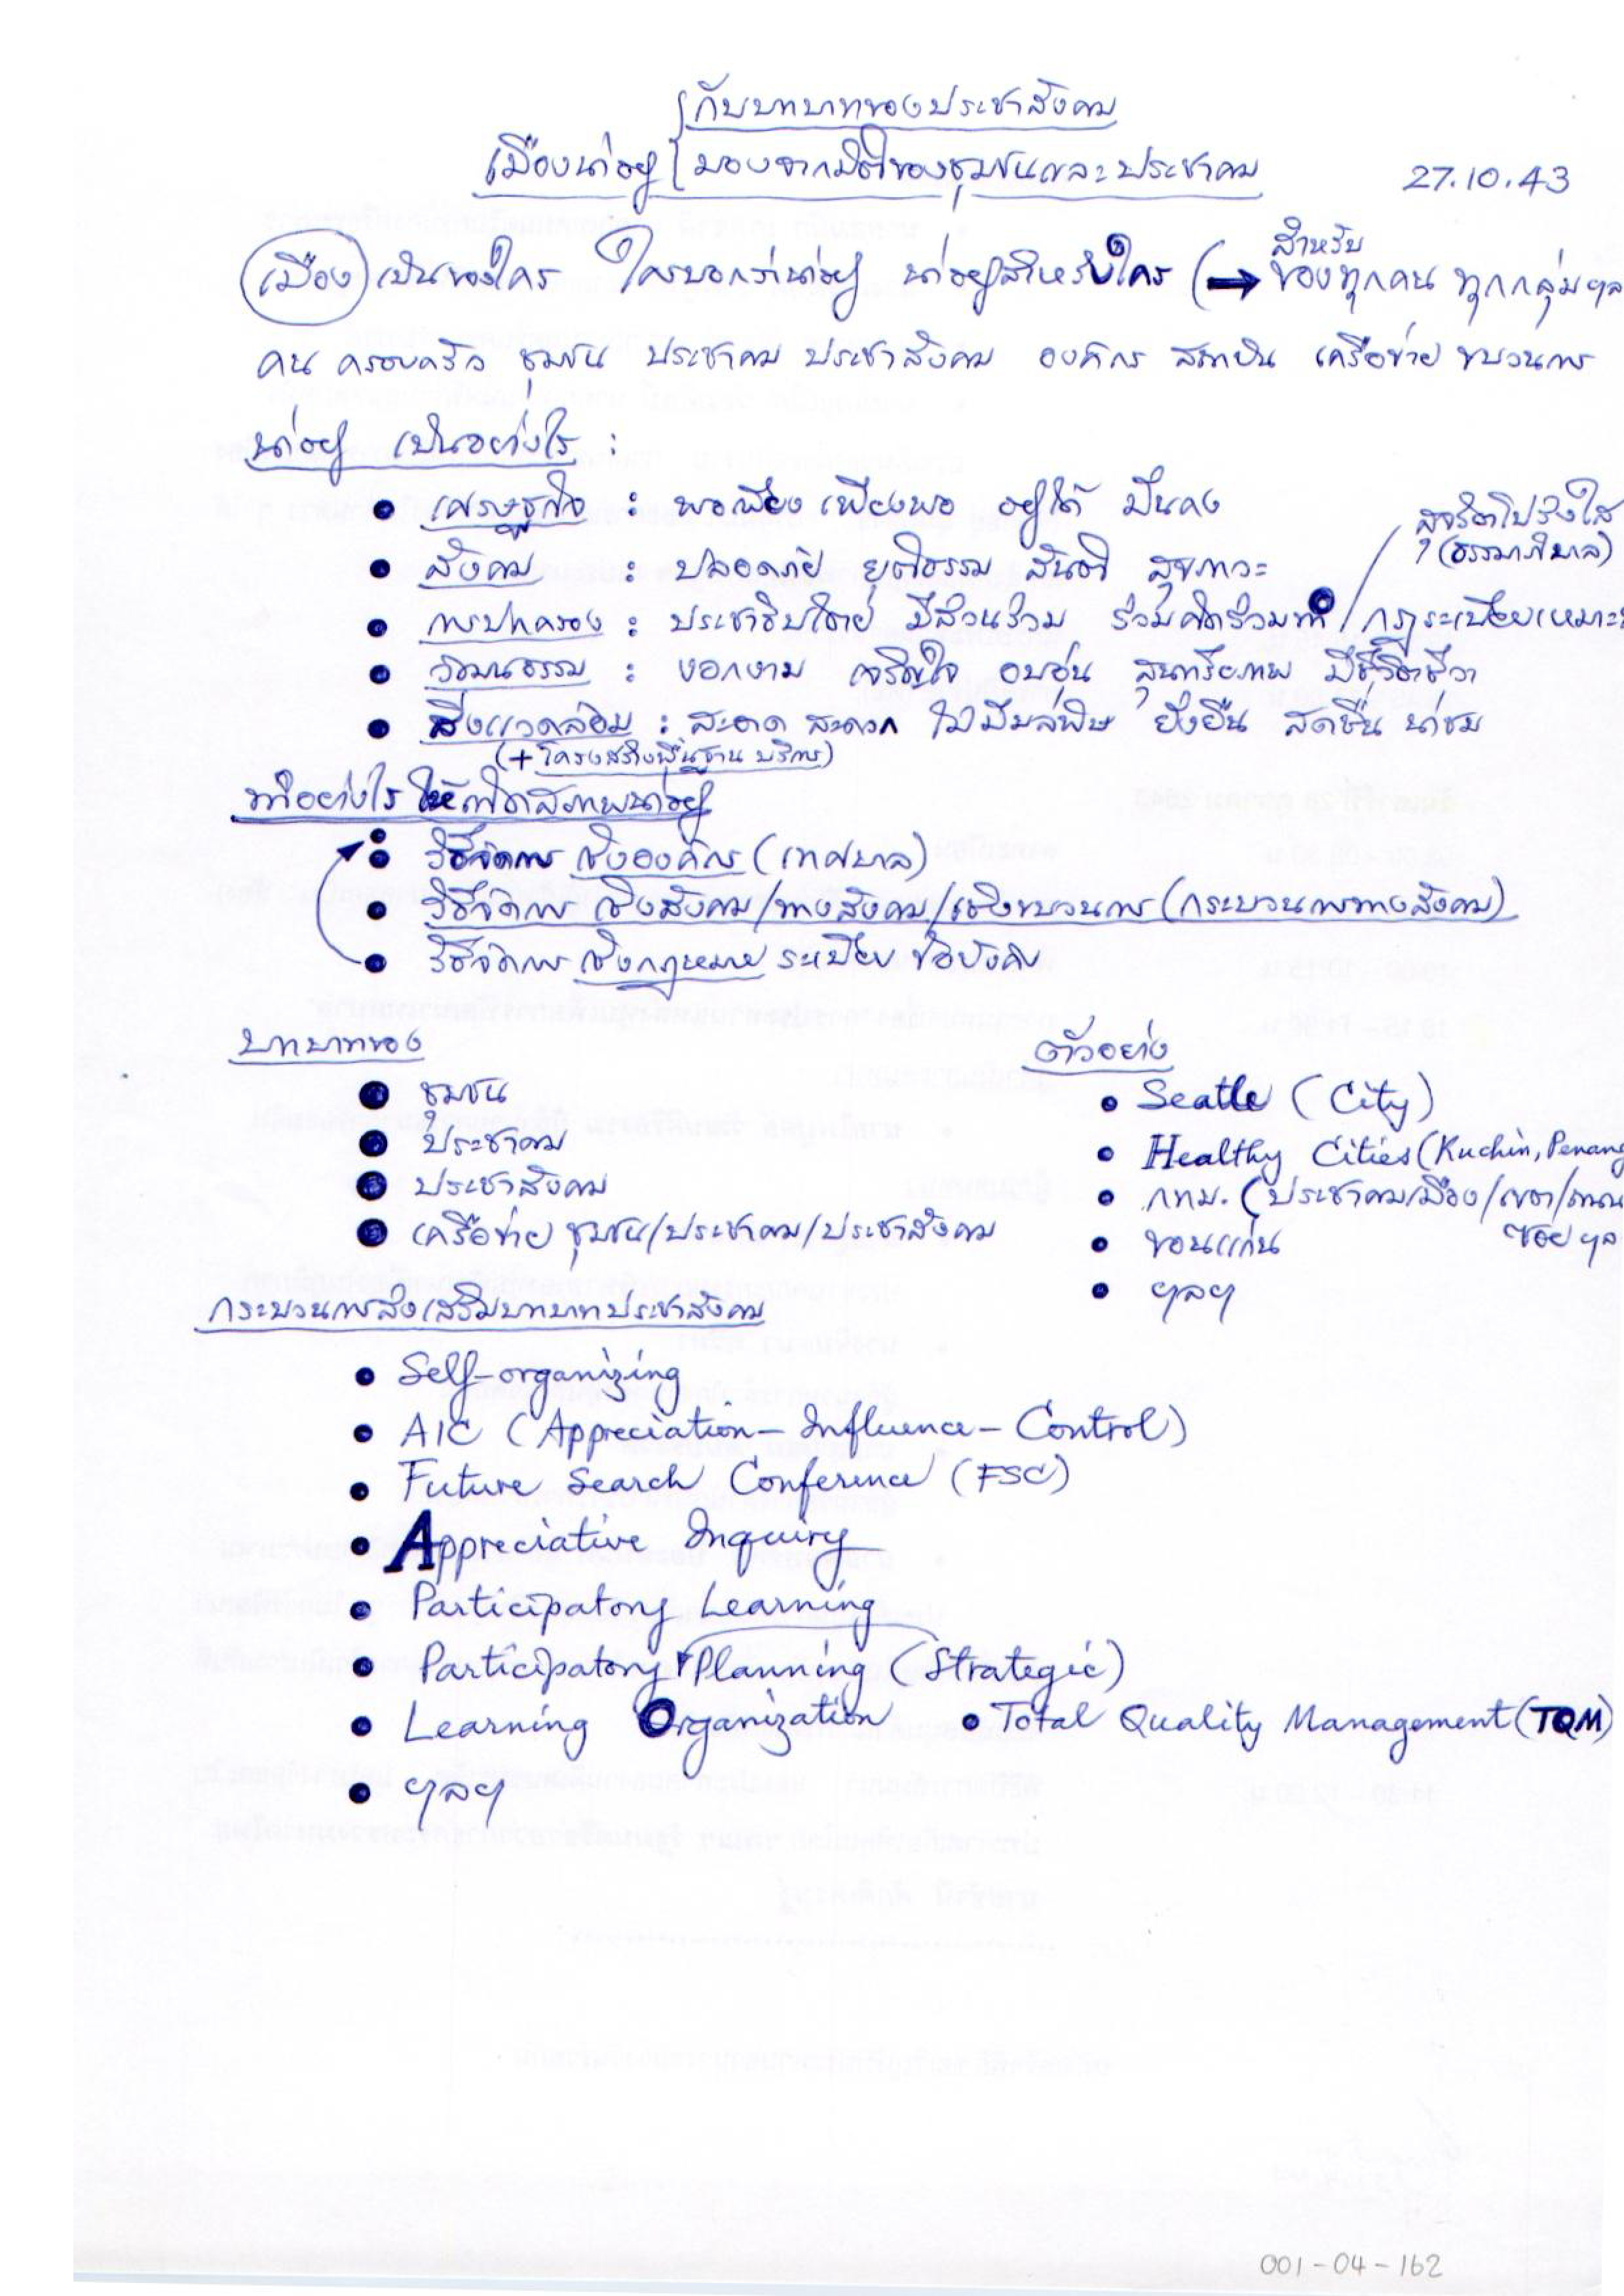 กับบทบาทของประชาสังคม
เมืองน่าอยู่ มองจากมิติของชุมชนและประชาคม 27.10.43
สำหรับ
เมือง เป็นของใคร ใครบอกว่าน่าอยู่ น่าอยู่สำหรับใคร (→ ของทุกคน ทุกกลุ่ม ฯล
คน ครอบครัว ชุมชน ประชาคม ประชาสังคม องค์กร สถาบัน เครือข่าย ขบวนการ
น่าอยู่ เป็นอย่างไร :
• เศรษฐกิจ : พอเพียง เพียงพอ อยู่ได้ มั่นคง
สุจริตโปร่งใส
(ธรรมาภิบาล)
• สังคม : ปลอดภัย ยุติธรรม สันติ สุขภาวะ
• การปกครอง : ประชาธิปไตย มีส่วนร่วม ร่วมคิดร่วมทำ / กฎระเบียบเหมาะ
• วัฒนธรรม : งอกงาม เจริญใจ อบอุ่น สุนทรียภาพ มีชีวิตชีวา
• สิ่งแวดล้อม : สะอาด สะดวก ไม่มีมลพิษ ยั่งยืน สดชื่น น่าชม
(+ โครงสร้างพื้นฐาน บริการ)
ทำอย่างไร ให้เกิดสภาพน่าอยู่
• วิธีจัดการ เชิงองค์กร (เทศบาล)
• วิธีจัดการ เชิงสังคม/ทางสังคม/เชิงขบวนการ (กระบวนการทางสังคม)
• วิธีจัดการ เชิงกฎหมาย ระเบียบ ข้อบังคับ
บทบาทของ
• ชุมชน
• ประชาคม
• ประชาสังคม
• เครือข่าย ชุมชน/ประชาคม/ประชาสังคม
ตัวอย่าง
• Seatle (City)
• Healthy Cities (Kuchin, Penang
• กทม. (ประชาคมเมือง/เขต/ถนน
ซอย ฯล
• ขอนแก่น
• ฯลฯ
กระบวนการส่งเสริมบทบาทประชาสังคม
• Self-organizing
• AIC (Appreciation - Influence - Control)
• Future Search Conference (FSC)
• Appreciative Inquiry
• Participatory Learning
• Participatory Planning (Strategic)
• Learning Organization • Total Quality Management (TQM)
• ฯลฯ
001-04-162